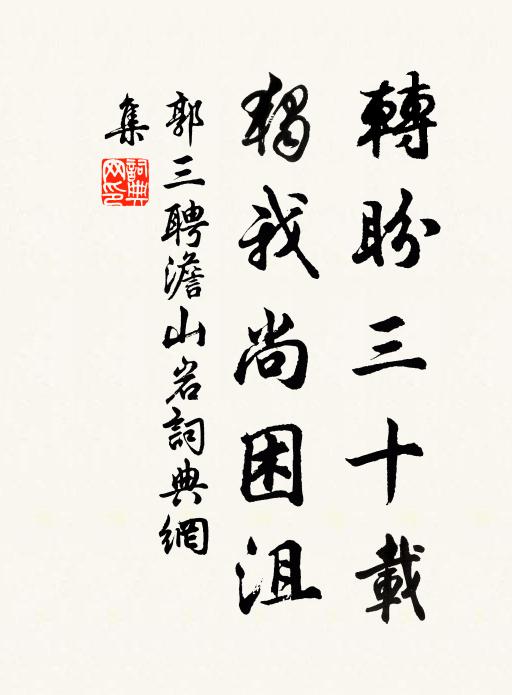 轉盼三十載
獨我尚困沮
郭三聘澹山岩詞典網
集
詞典
网印